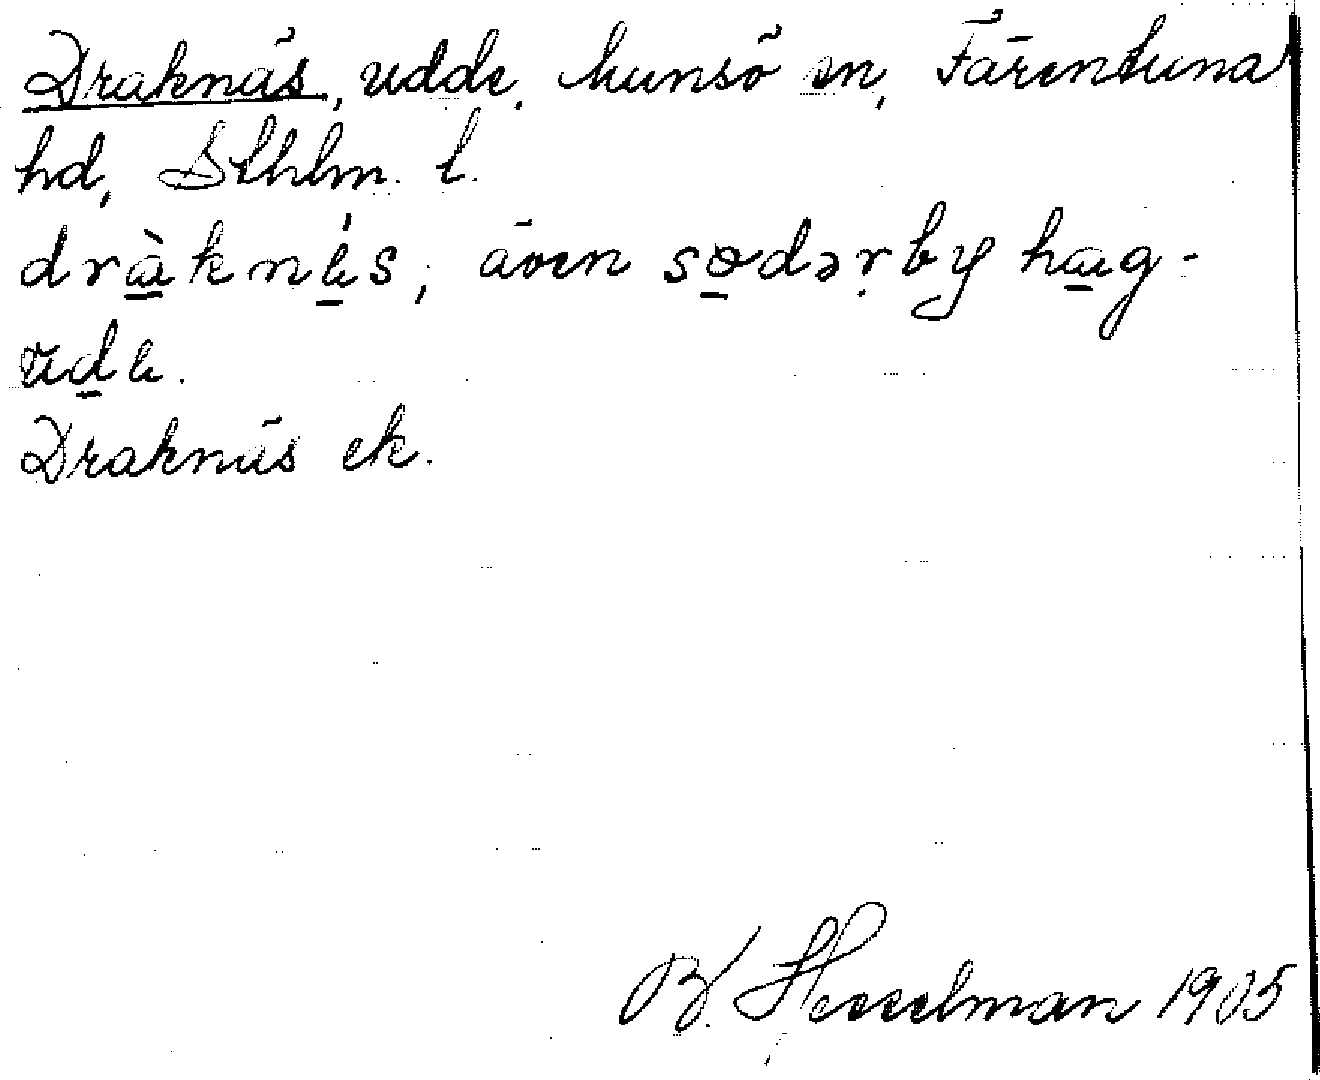 Draknäs, udde, Munsö sn, Färentuna
hd, Sthlm. l.
dràknä́s, även sødərby hag-
udɛ.
Draknäs ek.
B. Hesselman 1905